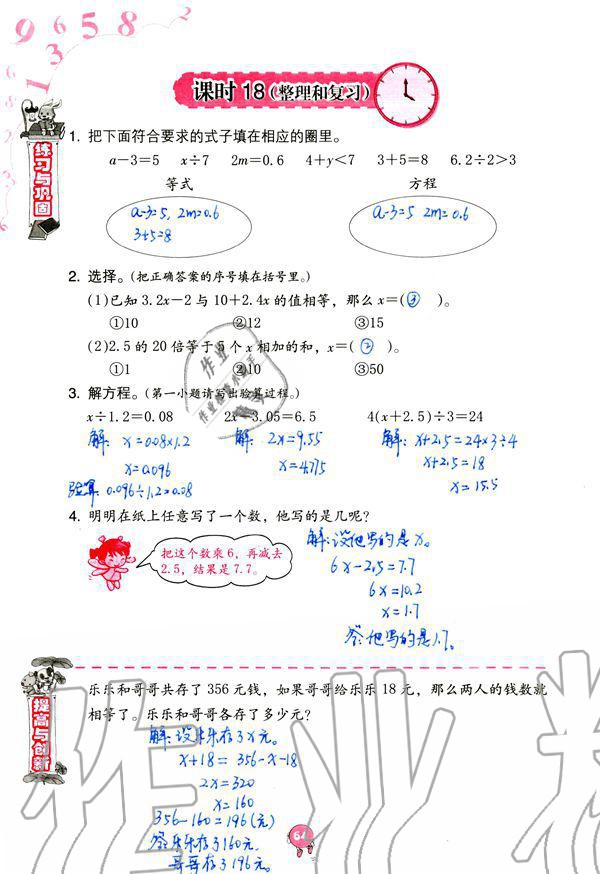 9 6 5 8 2
1 3 5 8
课时 18（整理和复习）
练习与巩固
1. 把下面符合要求的式子填在相应的圈里。
a－3＝5 x÷7 2m＝0.6 4＋y＜7 3＋5＝8 6.2÷2＞3
等式 方程
a-3=5, 2m=0.6 a-3=5 2m=0.6
3+5=8
2. 选择。（把正确答案的序号填在括号里。）
(1)已知 3.2x－2 与 10＋2.4x 的值相等，那么 x＝( ③ )。
①10 ②12 ③15
(2)2.5 的 20 倍等于5个 x 相加的和，x＝( ② )。
①1 ②10 ③50
3. 解方程。（第一小题请写出验算过程。）
x÷1.2＝0.08 2x－3.05＝6.5 4(x＋2.5)÷3＝24
解: x=0.08×1.2 解: 2x=9.55 解: x+2.5=24×3÷4
x=0.096 x=4.775 x+2.5=18
验算: 0.096÷1.2=0.08 x=15.5
4. 明明在纸上任意写了一个数，他写的是几呢？
把这个数乘 6，再减去
2.5，结果是 7.7。
解:设他写的是x。
6x-2.5=7.7
6x=10.2
x=1.7
答:他写的是1.7。
提高与创新
乐乐和哥哥共存了 356 元钱，如果哥哥给乐乐 18 元，那么两人的钱数就
相等了。乐乐和哥哥各存了多少元？
解:设乐乐存了x元。
x+18=356-x-18
2x=320
x=160
356-160=196(元)
答:乐乐存了160元
哥哥存了196元。
64
作业